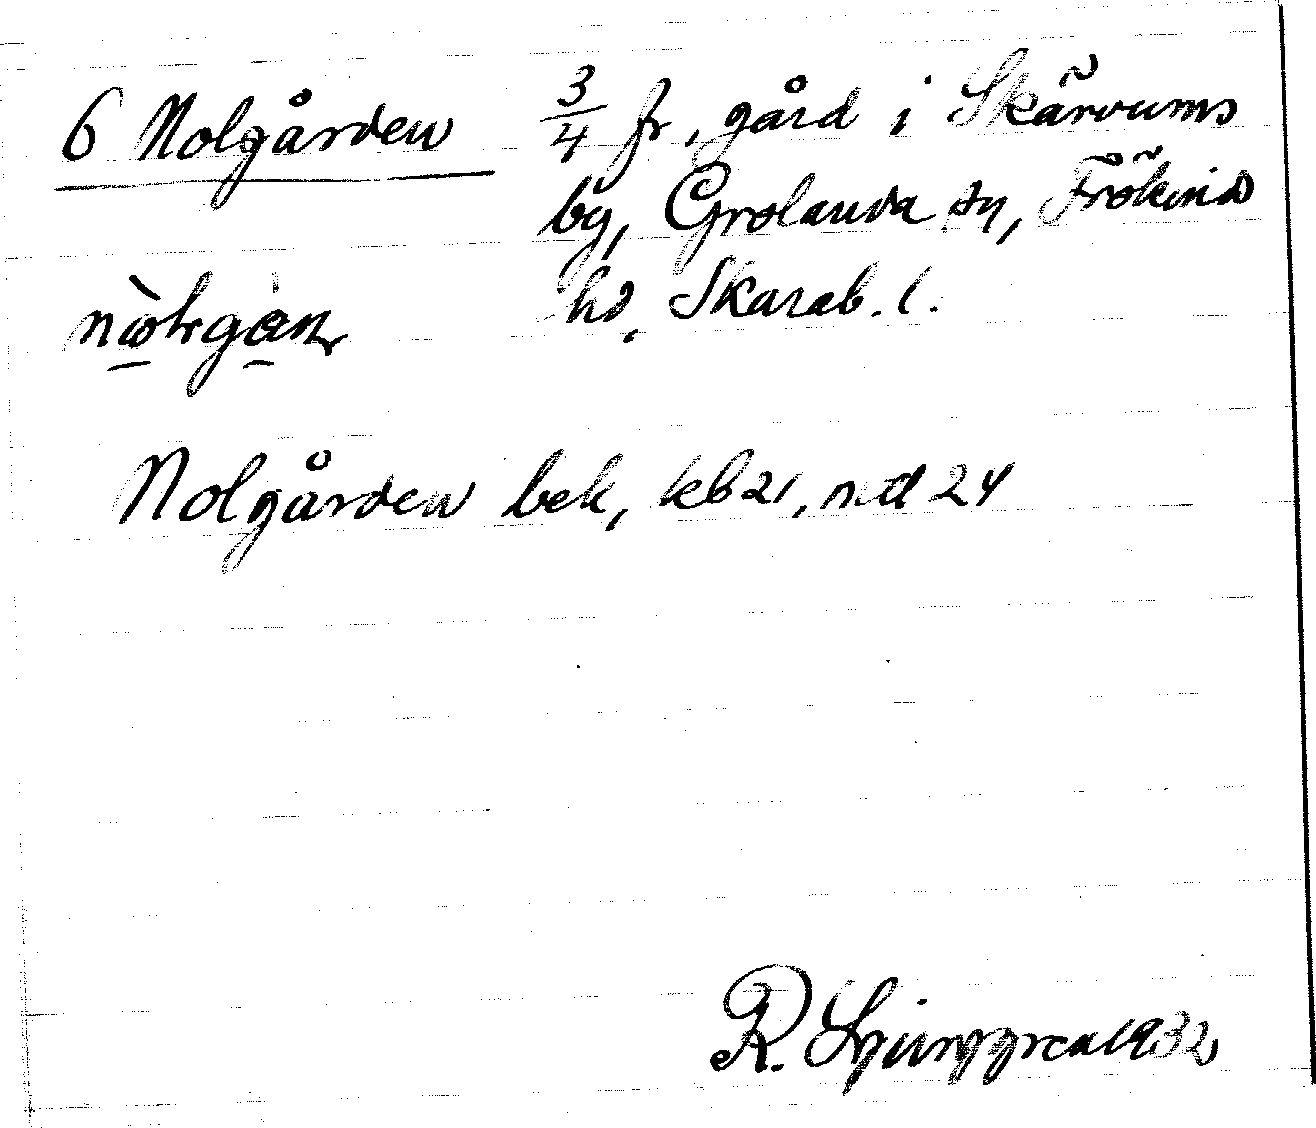 6 Nolgården 3/4 fr, gård i Skärvums
by, Grolanda sn, Frökinds
hd, Skarab. l.
Nolgården bek, kb 21, mtl 24
R. Ljunggren 1932